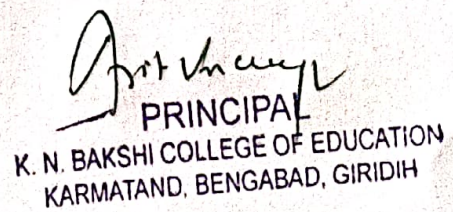 PRINCIPAL
K. N. BAKSHI COLLEGE OF EDUCATION
KARMATAND, BENGABAD, GIRIDIH